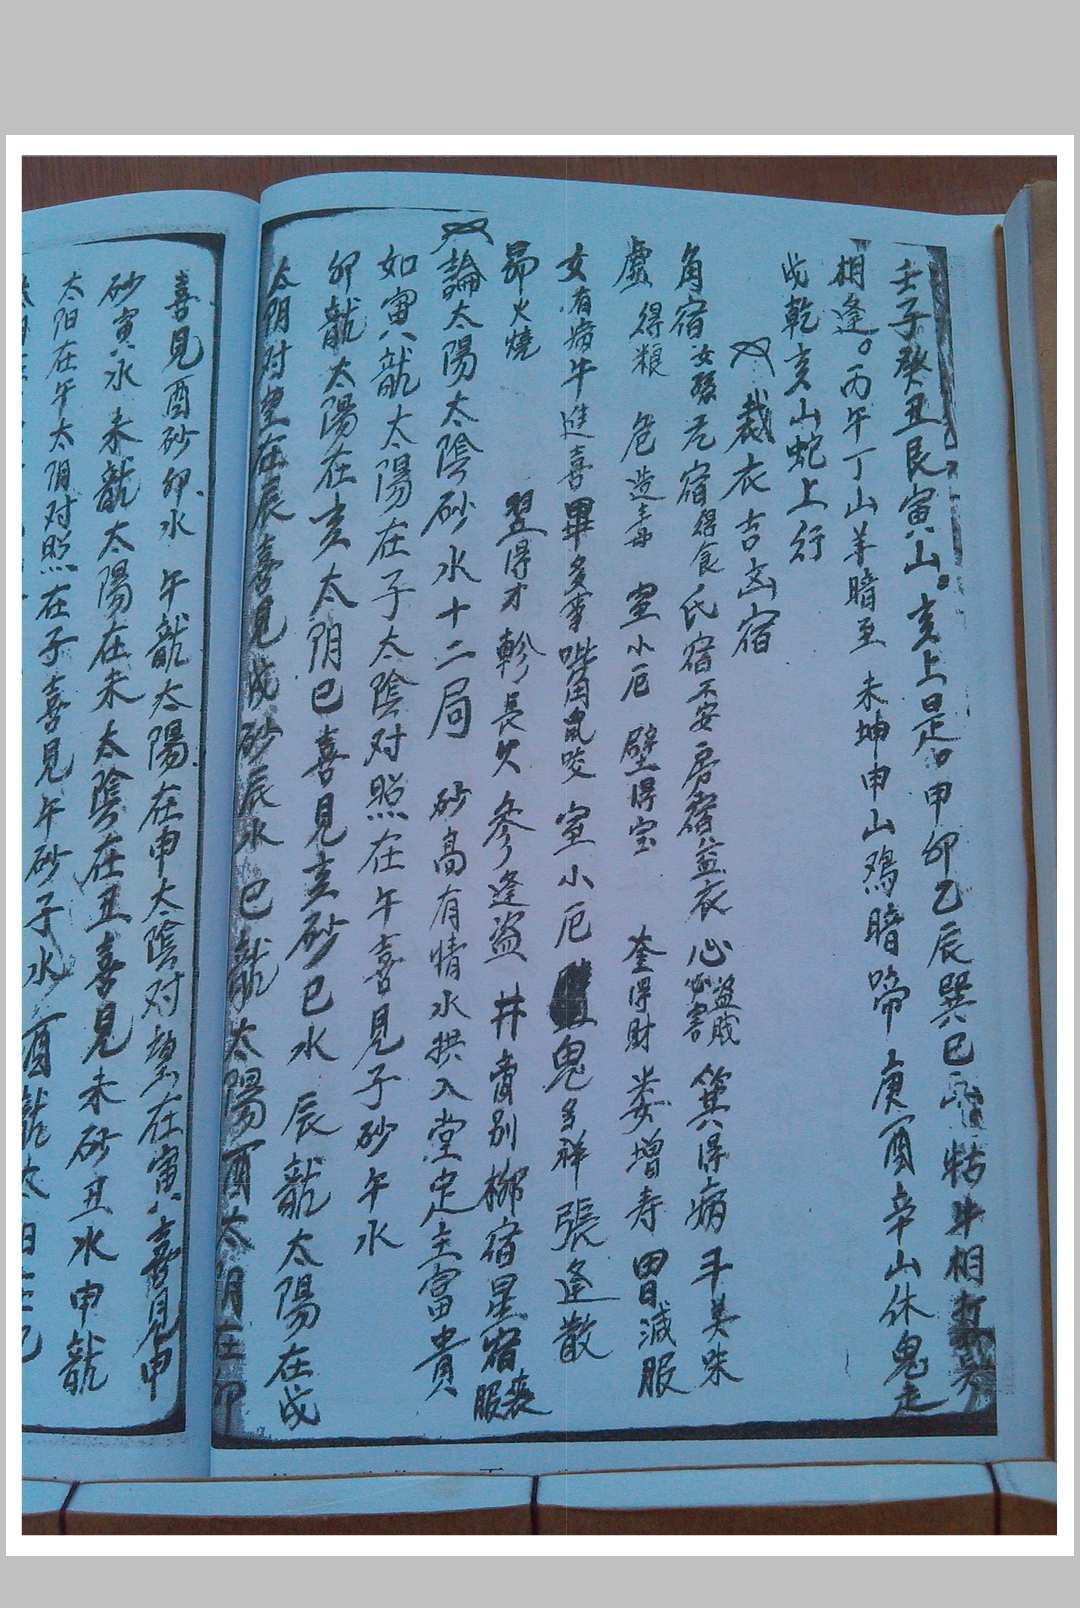 壬子癸丑艮寅山。亥上是。甲卯乙辰巽巳 牯牛相
相逢。丙午丁山羊暗至 未坤申山鸡暗啼 庚酉辛山休鬼走
戌乾亥山蛇上行
裁衣吉凶宿
角宿 亢宿得食 氐宿不安 房宿益衣 心盗賊 箕得病 斗美味
虛得粮 危造毒 室小厄 壁得宝 奎得財 娄增寿 胃減服
女有病 牛進喜 畢多事 鼠咬 室小厄 鬼多祥 張逢散
昴火燒 翌得才 軫長久 參逢盜 井 別 柳宿星宿喪服
論太陽太陰砂水十二局 砂高有情水拱入堂定主富貴
如寅龍太陽在子太陰对照在午喜見子砂午水
卯龍太陽在亥太阴巳喜見亥砂巳水 辰龍太陽在戌
太阴对望在辰喜見戌砂辰水 巳龍太陽酉太阴在卯
喜見酉砂卯水 午龍太陽在申太陰对望在寅喜見申
砂寅水 未龍太陽在未太陰在丑喜見未砂丑水申龍
太阳在午太阴对照在子喜見午砂子水 酉龍太